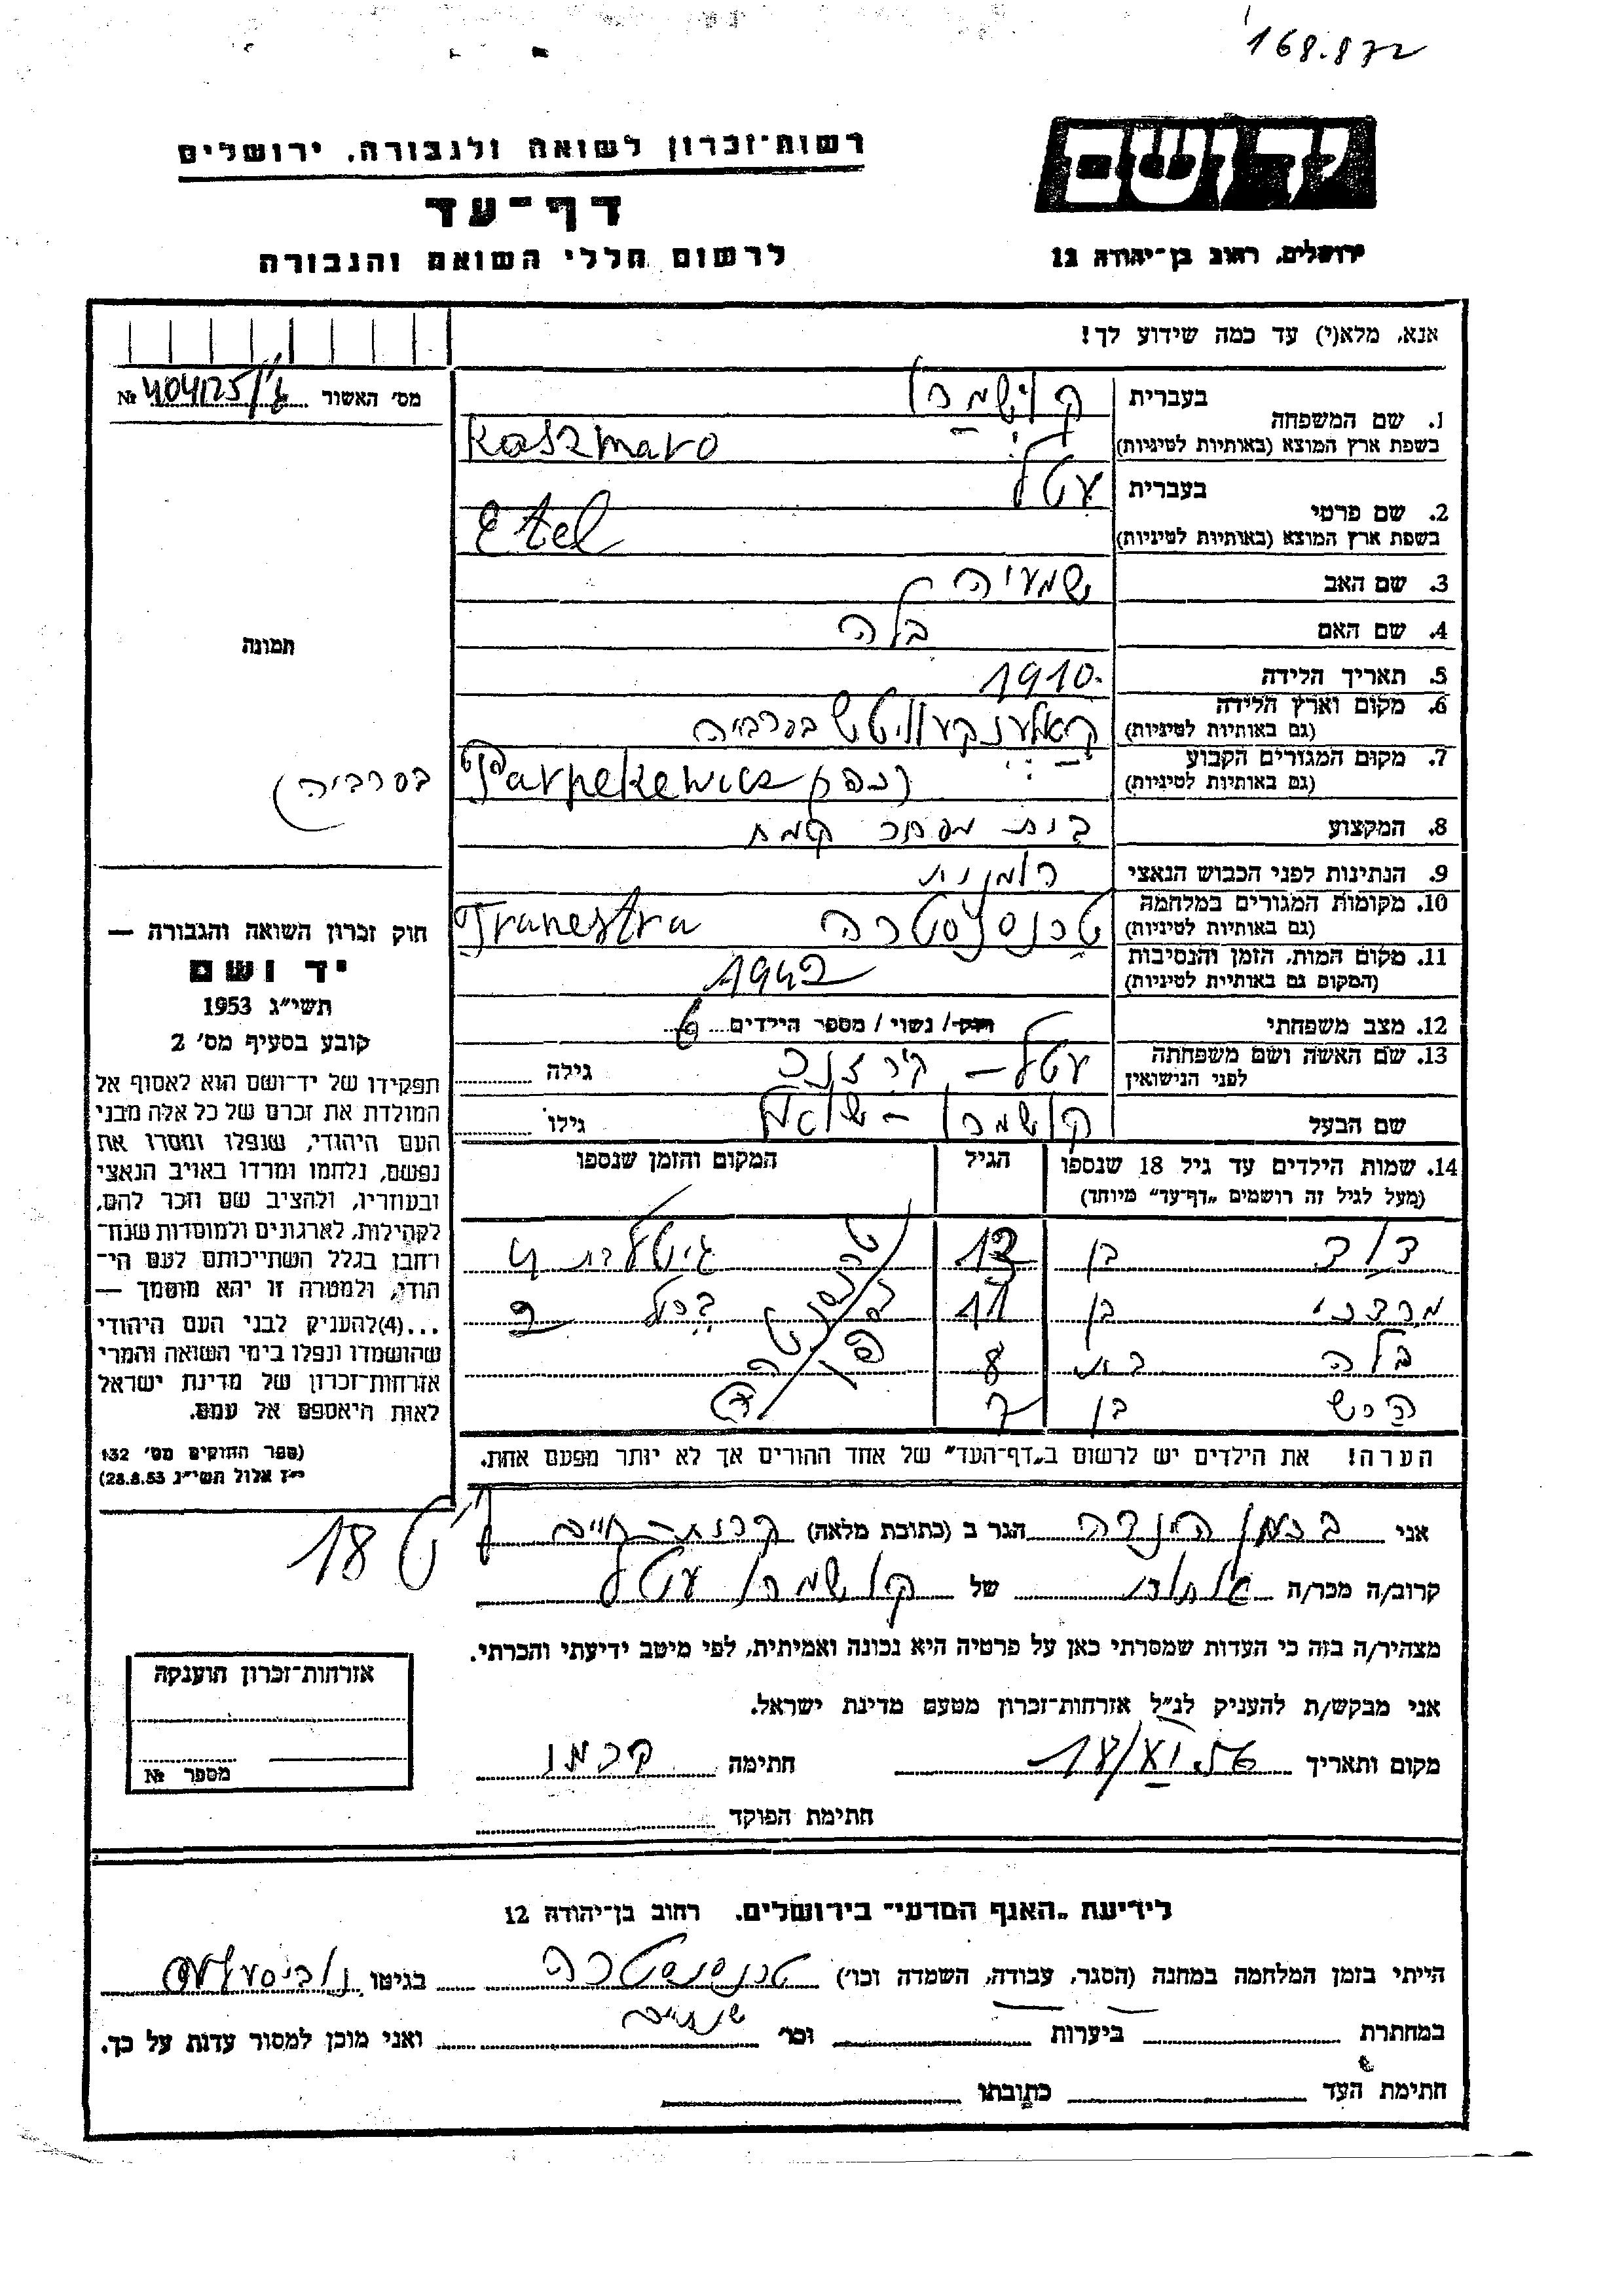 168.872
רשות־זכרון לשואה ולגבורה, ירושלים
יד ושם
דף־עד
לרשום חללי השואה והגבורה
ירושלים, רחוב בן־יהודה 12
אנא, מלא(י) עד כמה שידוע לך!
מס׳ האשור № 404125/
1. שם המשפחה
בעברית קוישמרו
בשפת ארץ המוצא (באותיות לטיניות) Kaszmaro
2. שם פרטי
בעברית עטל
בשפת ארץ המוצא (באותיות לטיניות) Etel
3. שם האב שמעיה
4. שם האם בלה
תמונה
5. תאריך הלידה 1910
6. מקום וארץ הלידה (גם באותיות לטיניות) בסרביה
7. מקום המגורים הקבוע (גם באותיות לטיניות) Parnekewics בסרביה
8. המקצוע בית מסחר קמח
9. הנתינות לפני הכבוש הנאצי רומנית
10. מקומות המגורים במלחמה (גם באותיות לטיניות) טרנסנסטרה Tranestra
11. מקום המות, הזמן והנסיבות (המקום גם באותיות לטיניות) 1942
12. מצב משפחתי רוק/ נשוי/ מספר הילדים 6
13. שם האשה ושם משפחתה לפני הנישואין עטל – גילה
שם הבעל קושמרו – גילו
14. שמות הילדים עד גיל 18 שנספו (מעל לגיל זה רושמים „דף־עד״ מיוחד) הגיל המקום והזמן שנספו
דוד בן 13
מרדכי בן 11
בלה בת 8
הרש בן 7
הערה! את הילדים יש לרשום ב„דף־העד״ של אחד ההורים אך לא יותר מפעם אחת.
חוק זכרון השואה והגבורה —
יד ושם
תשי״ג 1953
קובע בסעיף מס׳ 2
תפקידו של יד־ושם הוא לאסוף אל
המולדת את זכרם של כל אלה מבני
העם היהודי, שנפלו ומסרו את
נפשם, נלחמו ומרדו באויב הנאצי
ובעוזריו, ולהציב שם וזכר להם,
לקהילות, לארגונים ולמוסדות שנח־
רחבו בגלל השתייכותם לעם הי־
הודי, ולמטרה זו יהא מוסמך —
...(4)להעניק לבני העם היהודי
שהושמדו ונפלו בימי השואה והמרי
אזרחות־זכרון של מדינת ישראל
לאות היאספם אל עמם.
(ספר החוקים מס׳ 132
י״ז אלול תשי״ג 28.8.53)
אני הינדה הגר ב (כתובת מלאה) קרית־חיים
18
קרוב/ה מכר/ה של קושמרו עטל
מצהיר/ה בזה כי העדות שמסרתי כאן על פרטיה היא נכונה ואמיתית, לפי מיטב ידיעתי והכרתי.
אני מבקש/ת להעניק לנ״ל אזרחות־זכרון מטעם מדינת ישראל.
מקום ותאריך 18/XI.56 חתימה
חתימת הפוקד
אזרחות־זכרון הוענקה
מספר №
לידיעת „האגף המדעי״ בירושלים. רחוב בן־יהודה 12
הייתי בזמן המלחמה במחנה (הסגר, עבודה, השמדה וכו׳) טרנסנסטרה בגיטו
במחתרת ביערות וכו׳ שנתיים ואני מוכן למסור עדות על כך.
חתימת העד כתובתו